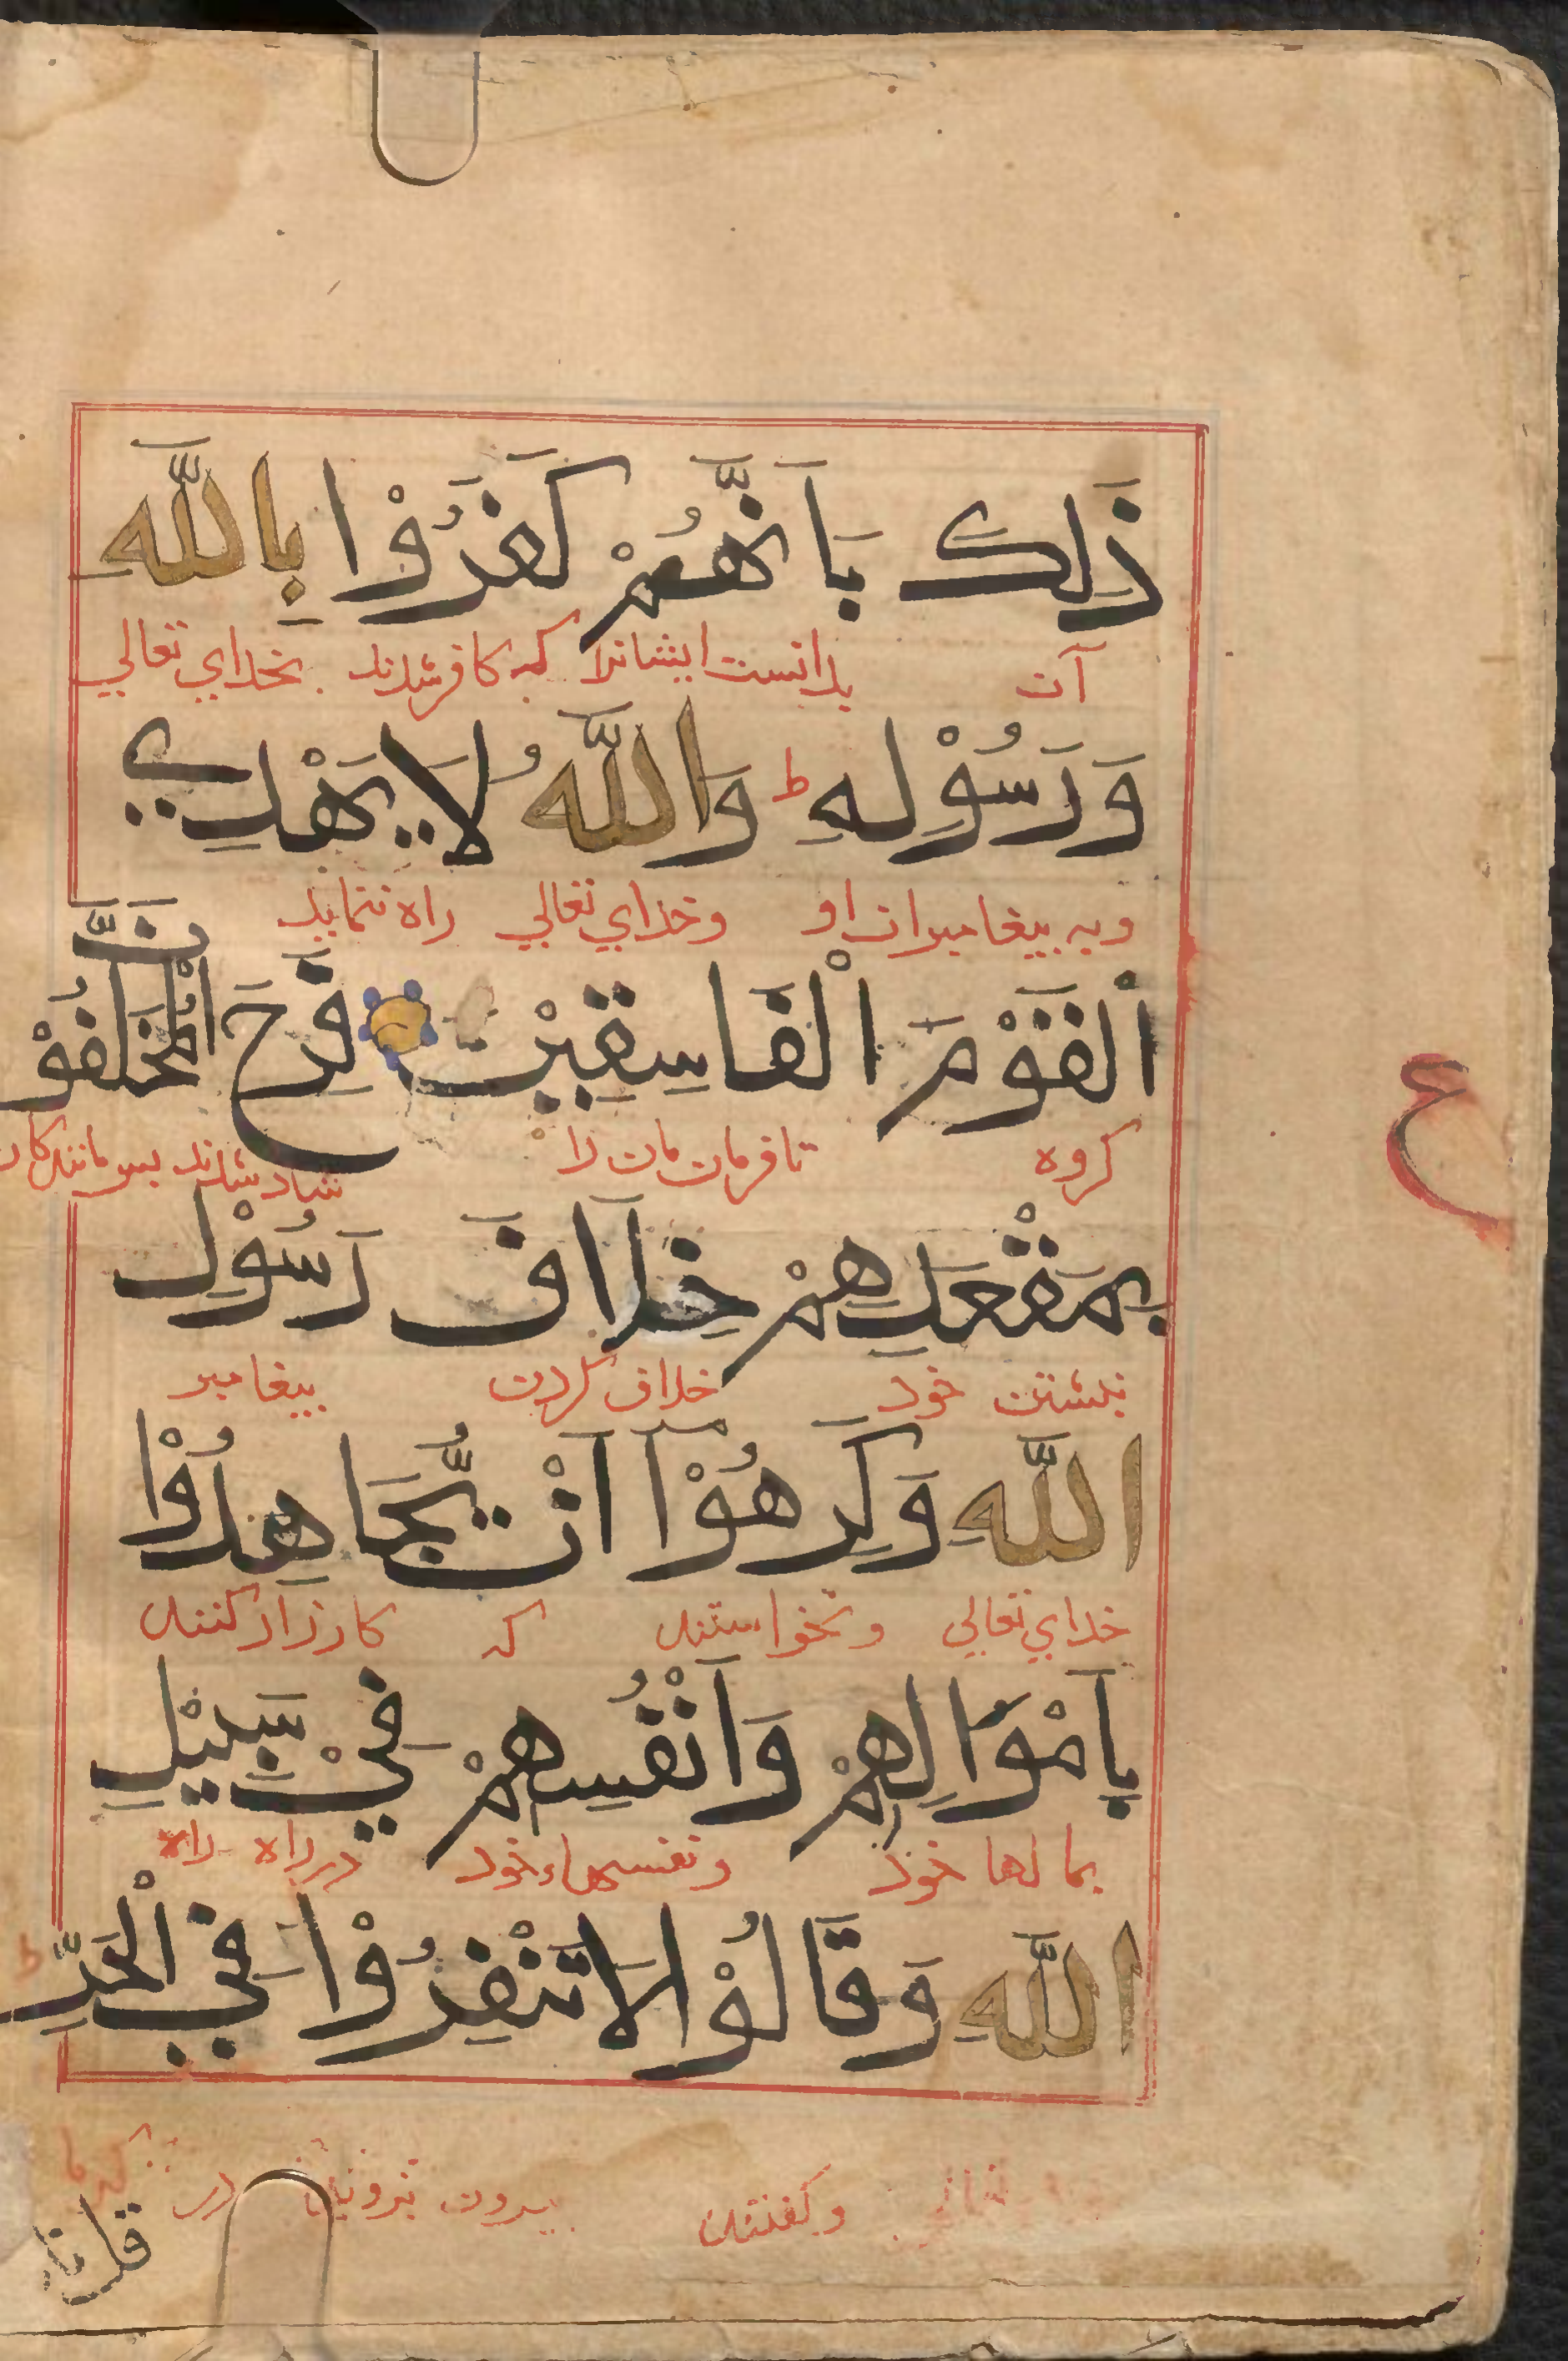 ذَلِكَ بِاَنَّهُمْ كَفَرُوْا بِاللّٰهِ
آن بدانست ایشانرا که کافر شدند بخدای تعالی
وَرَسُوْلِهِ ط وَاللّٰهُ لَا يَهْدِي
وبه پیغامبران او وخدای تعالی راه ننماید
الْقَوْمَ الْفَاسِقِيْنَ فَرِحَ الْمُخَلَّفُوْنَ
کروه نافرمان مان را شاد شدند پس مانند کان
ع
بِمَقْعَدِهِمْ خِلَافَ رَسُوْلِ
بنشستن خود خلاف کردن پیغامبر
اللّٰهِ وَكَرِهُوْا اَنْ يُّجَاهِدُوْا
خدای تعالی ونخواستند که کارزار کنند
بِاَمْوَالِهِمْ وَاَنْفُسِهِمْ فِيْ سَبِيْلِ
بمالها خود ونفسهاء خود در راه راه
اللّٰهِ وَقَالُوْا لَا تَنْفِرُوْا فِي الْحَرِّ ط
وکفتند بیرون نروید در کرما
قل نار